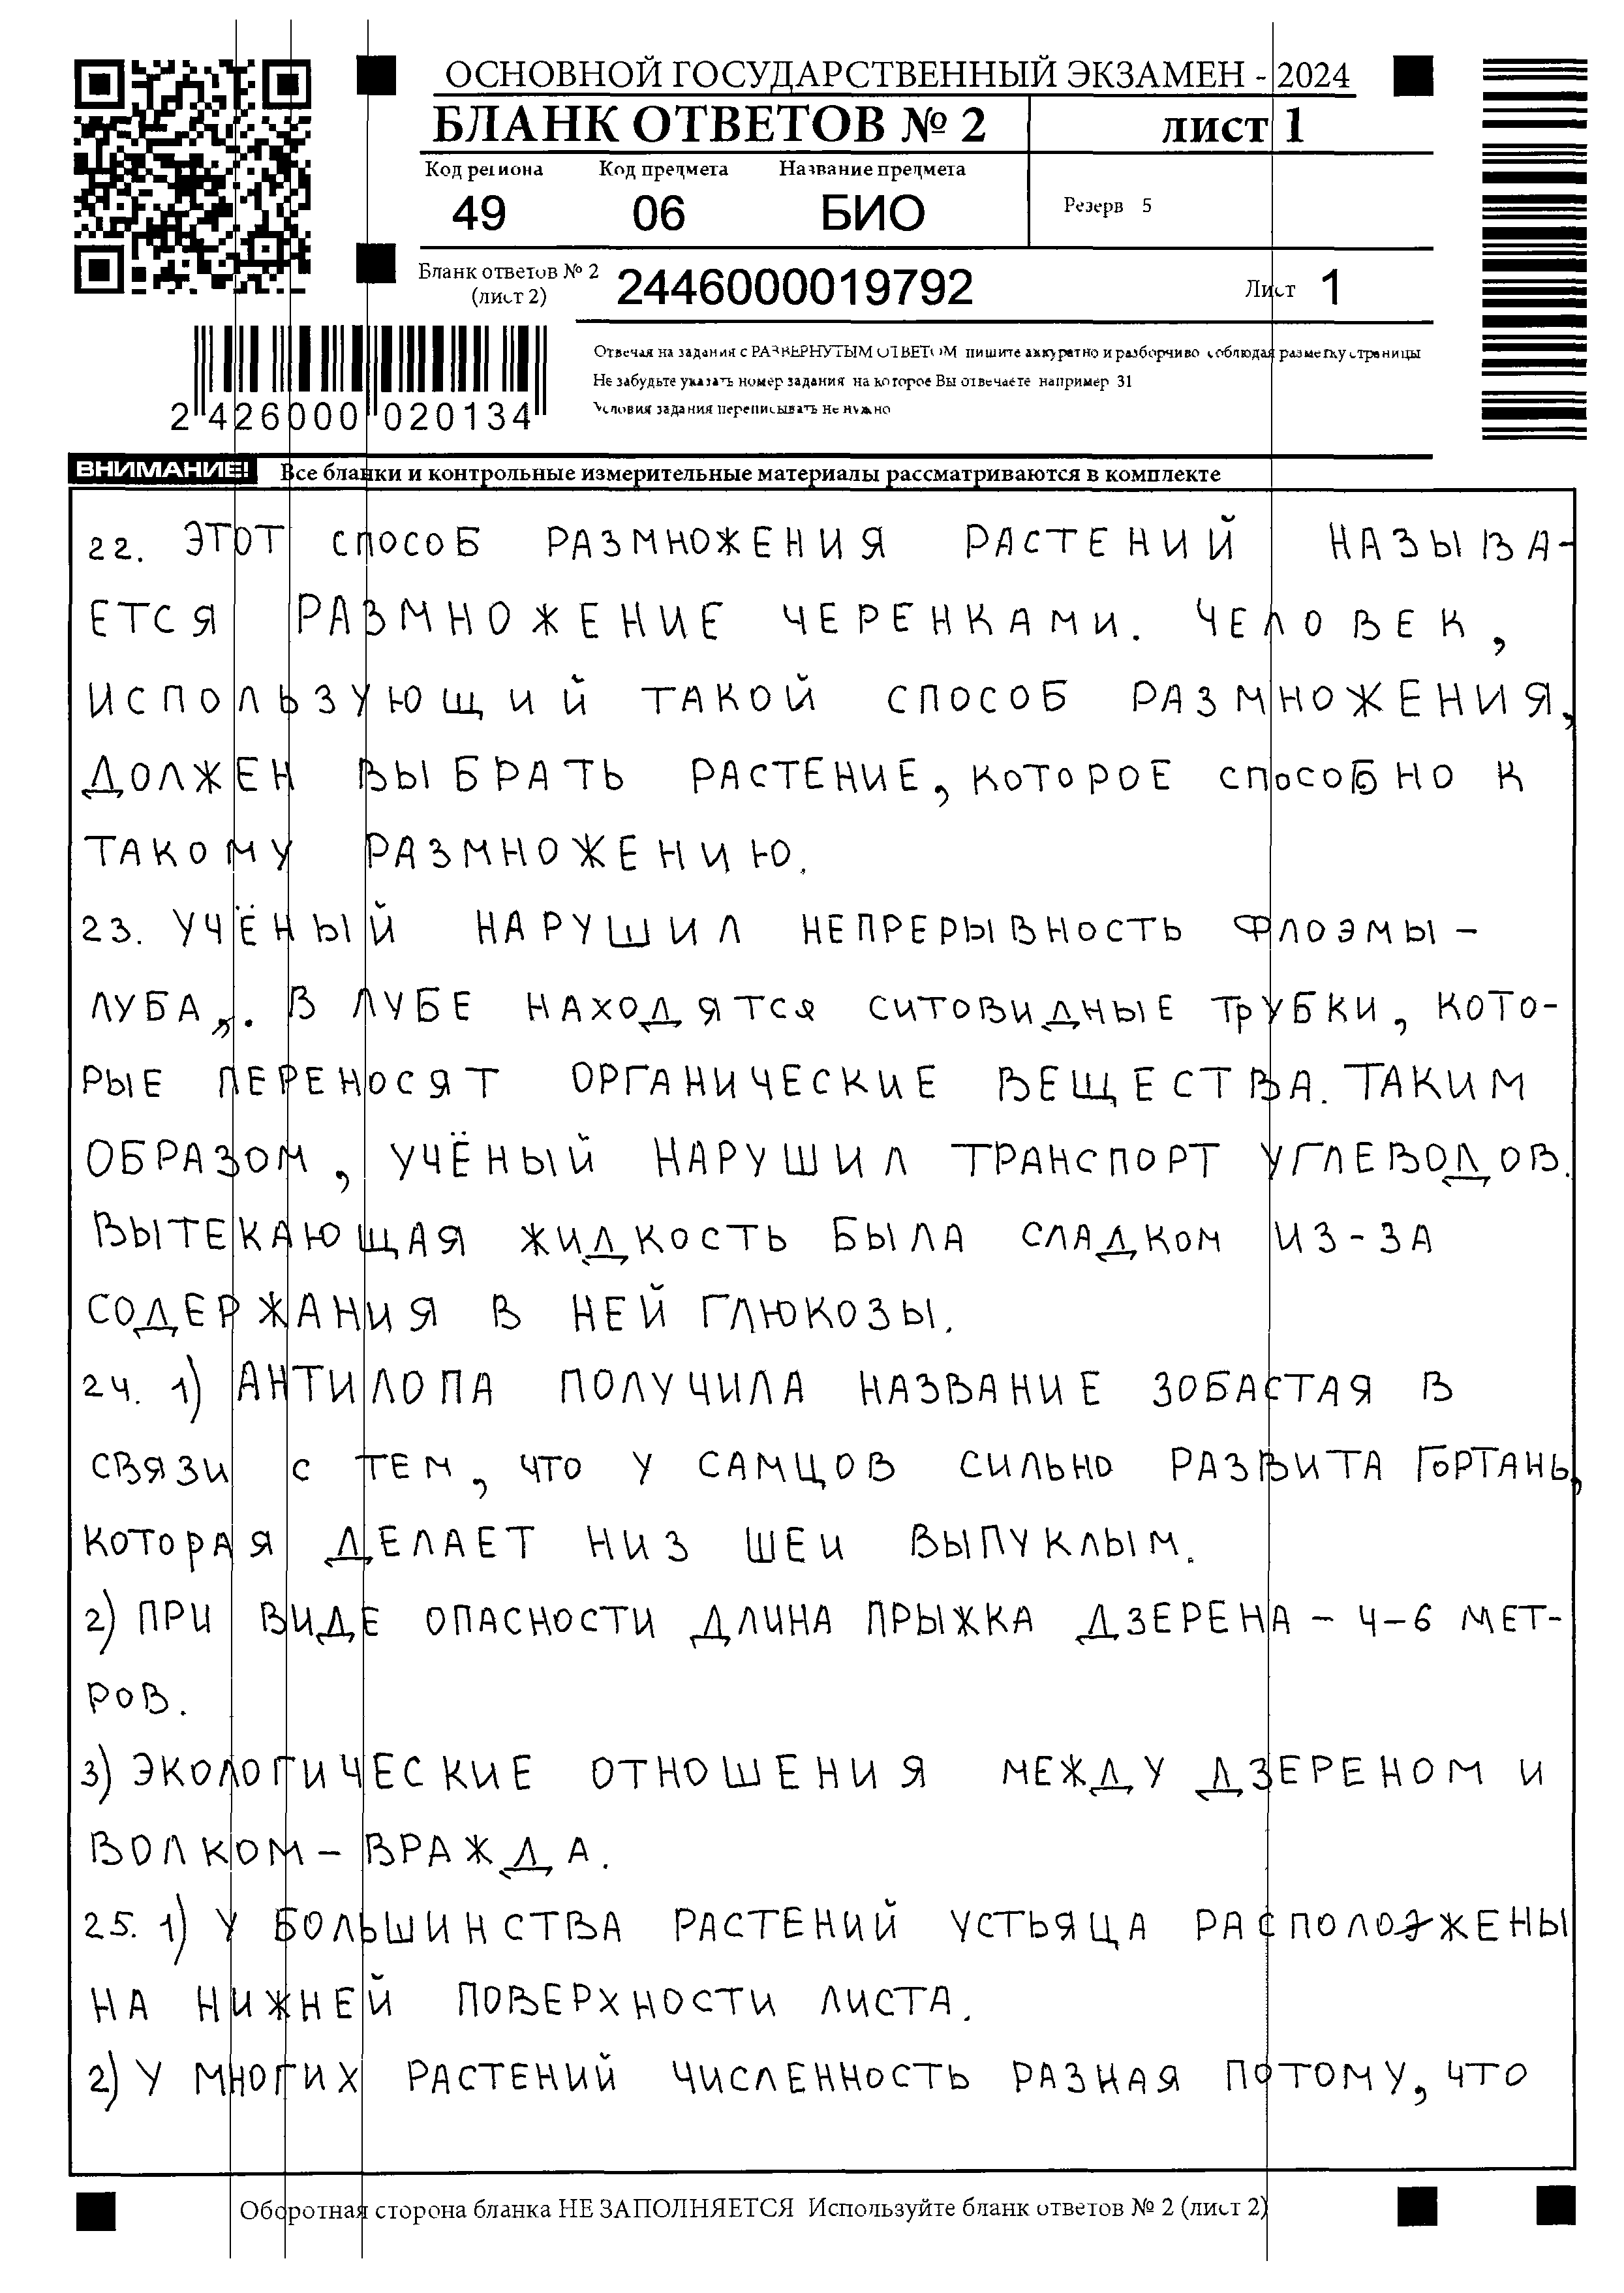 ОСНОВНОЙ ГОСУДАРСТВЕННЫЙ ЭКЗАМЕН - 2024
БЛАНК ОТВЕТОВ № 2 лист 1
Код региона Код предмета Название предмета
49 06 БИО Резерв 5
Бланк ответов № 2 (лист 2) 2446000019792 Лист 1
Отвечая на задания с РАЗВЕРНУТЫМ ОТВЕТОМ пишите аккуратно и разборчиво соблюдая разметку страницы
Не забудьте указать номер задания на которое Вы отвечаете например 31
Условия задания переписывать не нужно
2 426000 020134
ВНИМАНИЕ! Все бланки и контрольные измерительные материалы рассматриваются в комплекте
22. ЭТОТ СПОСОБ РАЗМНОЖЕНИЯ РАСТЕНИЙ НАЗЫВА-
ЕТСЯ РАЗМНОЖЕНИЕ ЧЕРЕНКАМИ. ЧЕЛОВЕК,
ИСПОЛЬЗУЮЩИЙ ТАКОЙ СПОСОБ РАЗМНОЖЕНИЯ,
ДОЛЖЕН ВЫБРАТЬ РАСТЕНИЕ, КОТОРОЕ СПОСОБНО К
ТАКОМУ РАЗМНОЖЕНИЮ.
23. УЧЁНЫЙ НАРУШИЛ НЕПРЕРЫВНОСТЬ ФЛОЭМЫ -
ЛУБА. В ЛУБЕ НАХОДЯТСЯ СИТОВИДНЫЕ ТРУБКИ, КОТО-
РЫЕ ПЕРЕНОСЯТ ОРГАНИЧЕСКИЕ ВЕЩЕСТВА. ТАКИМ
ОБРАЗОМ, УЧЁНЫЙ НАРУШИЛ ТРАНСПОРТ УГЛЕВОДОВ.
ВЫТЕКАЮЩАЯ ЖИДКОСТЬ БЫЛА СЛАДКОМ ИЗ-ЗА
СОДЕРЖАНИЯ В НЕЙ ГЛЮКОЗЫ.
24. 1) АНТИЛОПА ПОЛУЧИЛА НАЗВАНИЕ ЗОБАСТАЯ В
СВЯЗИ С ТЕМ, ЧТО У САМЦОВ СИЛЬНО РАЗВИТА ГОРТАНЬ,
КОТОРАЯ ДЕЛАЕТ НИЗ ШЕИ ВЫПУКЛЫМ.
2) ПРИ ВИДЕ ОПАСНОСТИ ДЛИНА ПРЫЖКА ДЗЕРЕНА - 4-6 МЕТ-
РОВ.
3) ЭКОЛОГИЧЕСКИЕ ОТНОШЕНИЯ МЕЖДУ ДЗЕРЕНОМ И
ВОЛКОМ - ВРАЖДА.
25. 1) У БОЛЬШИНСТВА РАСТЕНИЙ УСТЬЯЦА РАСПОЛОЖЕНЫ
НА НИЖНЕЙ ПОВЕРХНОСТИ ЛИСТА.
2) У МНОГИХ РАСТЕНИЙ ЧИСЛЕННОСТЬ РАЗНАЯ ПОТОМУ, ЧТО
Оборотная сторона бланка НЕ ЗАПОЛНЯЕТСЯ Используйте бланк ответов № 2 (лист 2)